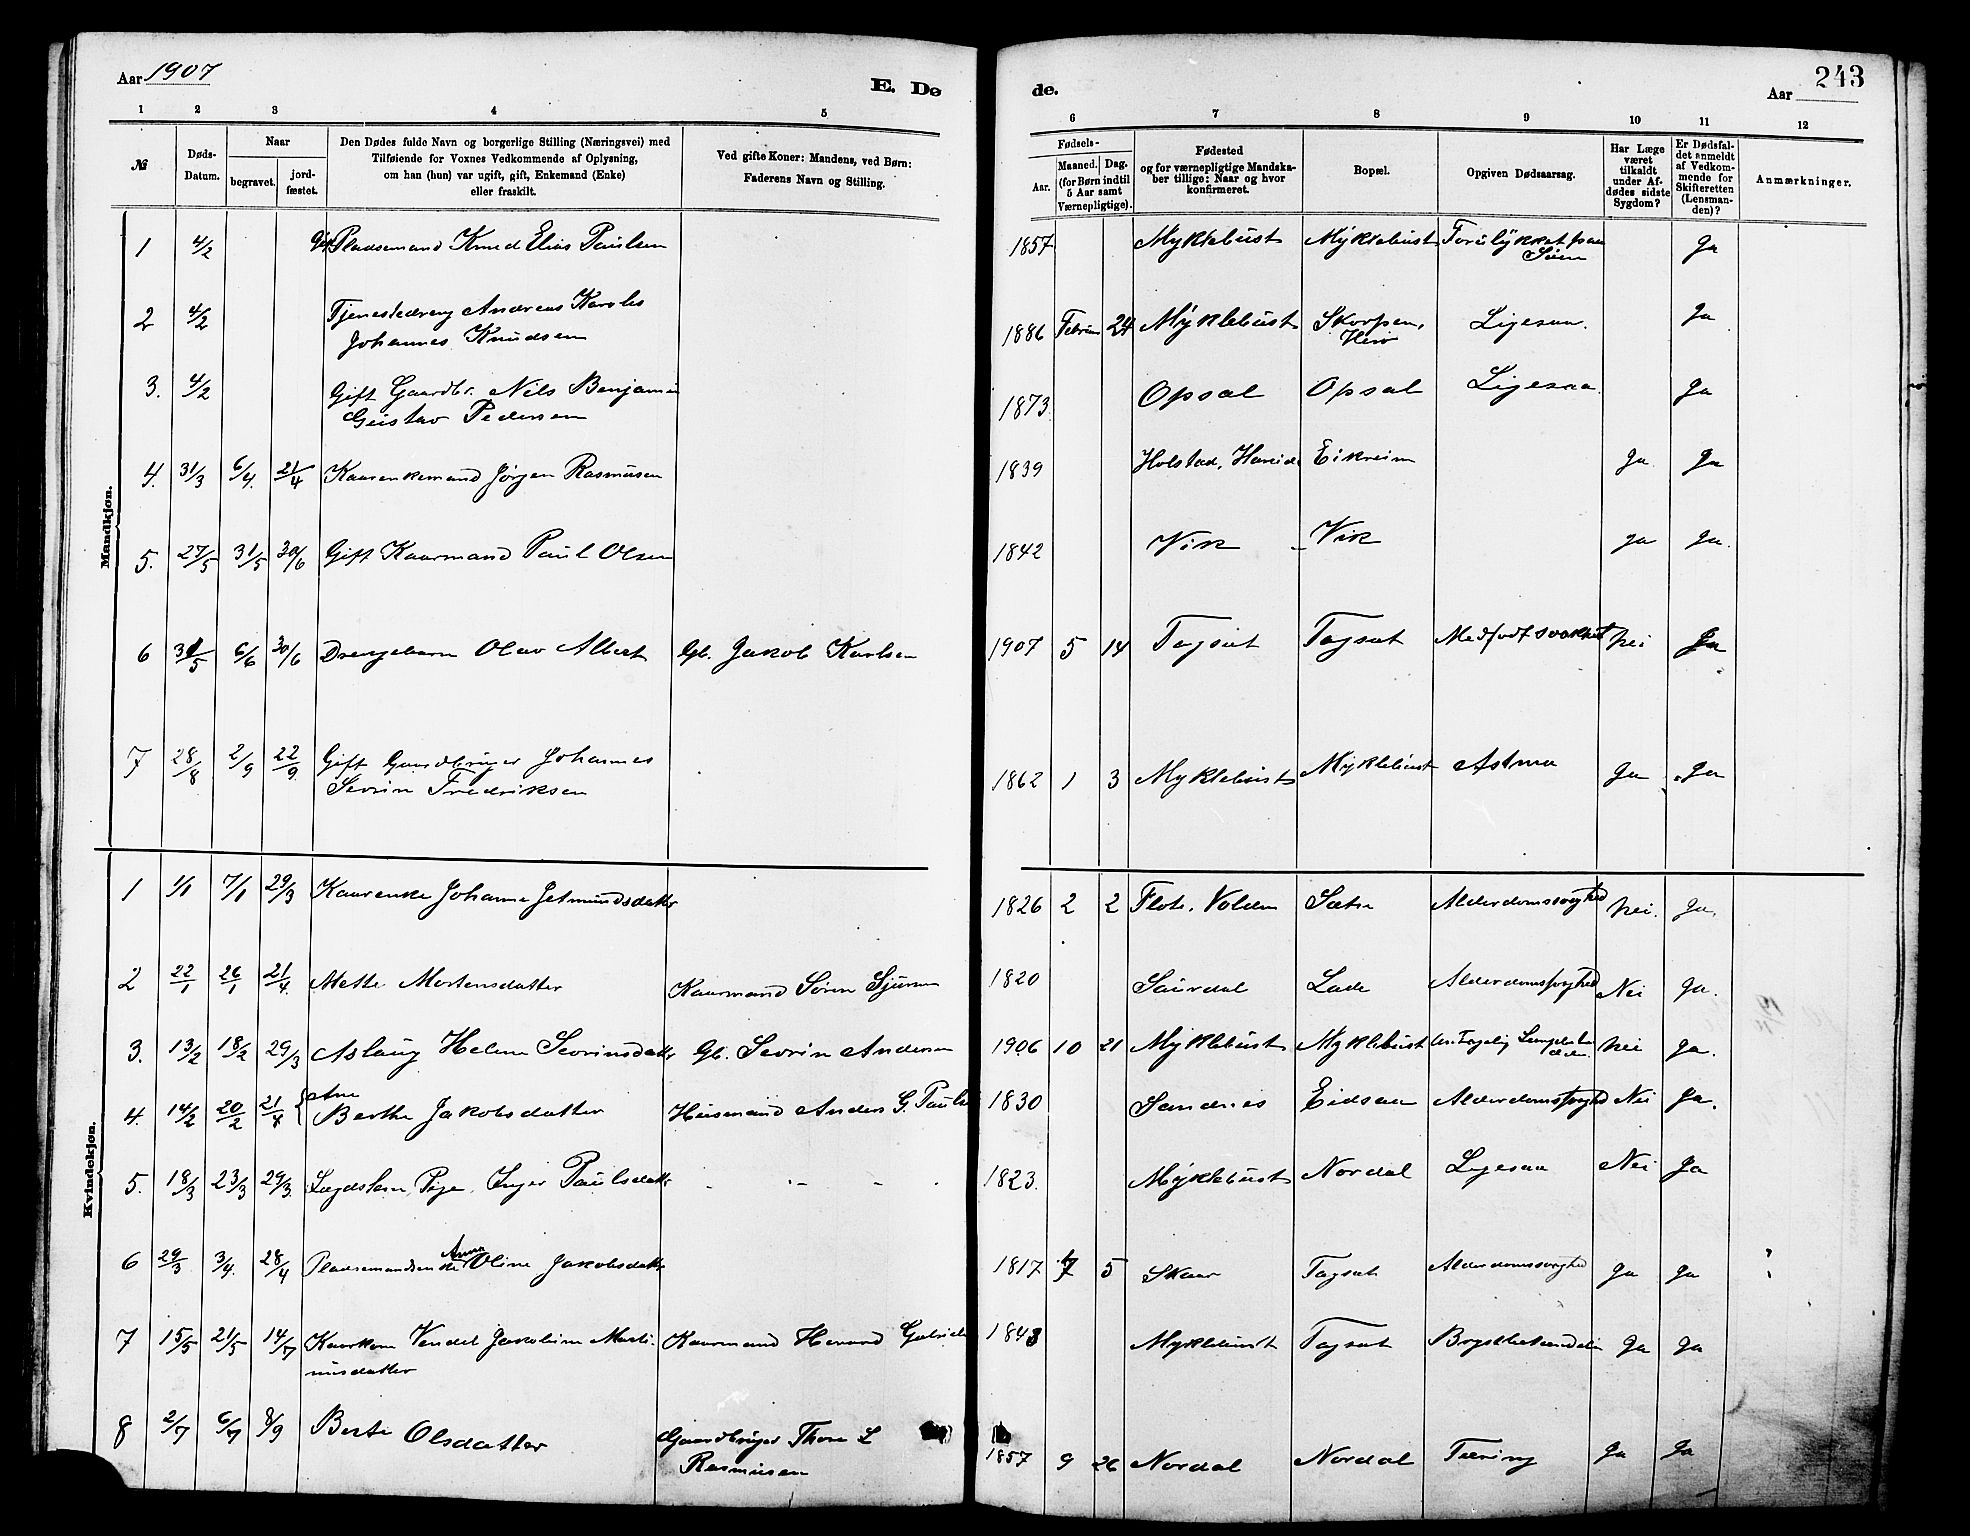 Aar 1907
E. Dø
de.
Aar
243
1 2 3 4 5 6 7 8 9 10 11 12
№
Døds-
Datum.
Naar
begravet.
jord-
fæstet.
Den Dødes fulde Navn og borgerlige Stilling (Næringsvei) med
Tilføiende for Voxnes Vedkommende af Oplysning,
om han (hun) var ugift, gift, Enkemand (Enke)
eller fraskilt.
Ved gifte Koner: Mandens, ved Børn:
Faderens Navn og Stilling.
Fødsels-
Aar.
Maaned. Dag.
(for Børn indtil
5 Aar samt
Værnepligtige).
Fødested
og for værnepligtige Mandska-
ber tillige: Naar og hvor
konfirmeret.
Bopæl.
Opgiven Dødsaarsag.
Har Læge
været
tilkaldt
under Af-
dødes sidste
Sygdom?
Er Dødsfal-
det anmeldt
af Vedkom-
mende for
Skifteretten
(Lensman-
den)?
Anmærkninger.
Mandkjøn.
1 4/2 Pladsemand Knud Elias Paulsen 1857 Myklebust Myklebust Forulykket paa Ja
Søen
2 4/2 Tjenestedreng Andreas Karolus 1886 Februar 24 Myklebust Skorpen, Ligesaa. Ja
Johannes Knudsen Herø
3. 4/2 Gift Gaardbr. Nils Benjamin 1873 Opsal Opsal Ligesaa Ja
Gustav Pedersen
4. 31/3 6/4. 21/4 Kaarenkemand Jørgen Rasmusen 1839 Holstad, Hareid Eikreim Ja Ja
5. 27/5 31/5 30/6 Gift Kaarmand Paul Olsen 1842 Vik Vik Ja Ja.
6 31/5 6/6 30/6 Drengebarn Olav Albert Gb. Jakob Karlsen 1907 5 14 Tagsæt Tagsæt Medfødt svakhet Nei Ja
7 28/8 2/9 22/9 Gift Gaardbruger Johannes 1862 1 3 Myklebust Myklebust Astma Ja Ja
Sevrin Fredriksen
Kvindekjøn.
1 1/1 7/1 29/3 Kaarenke Johanne Jetmundsdatter 1826 2 2 Flote, Volden Sætre Alderdomssvaghed Nei. Ja.
2 22/1 26/1 21/4. Mette Mortensdatter Kaarmand Søren Sjursen 1820 Saurdal Lade Alderdomssvaghed Nei Ja.
3. 13/2 18/2 29/3 Aslaug Helene Sevrinsdatter Gb. Sevrin Andersen 1906 10 21 Myklebust Myklebust Nei Ja.
4. 14/2 20/2 21/4 Ane
Berthe Jakobsdatter Husmand Anders G. Paulsen 1830 Sandnes Eidsaa Alderdomssvaghed Nei Ja.
5. 18/3 23/3 29/3. Lægdslem, Pige, Inger Paulsdatter - - - - 1823. Myklebust Nordal Ligesaa Nei Ja
6 29/3 3/4. 28/4 Pladsemandsenke Anne Oline Jakobsdatter 1817 7 5 Skaar Tagsæt Alderdomssvaghed Ja Ja ?
7 15/5 21/5 14/7 Kaarkone Vendel Jakobine Marti- Kaarmand Hevard Gabrielsen 1843 Myklebust Tagsæt Brystbetændelse Ja Ja
nusdatter
8 2/7 6/7 8/9 Berte Olsdatter Gaardbruger Thore L 1857 9 26 Nordal Nordal Tæring Ja Ja
Rasmusen